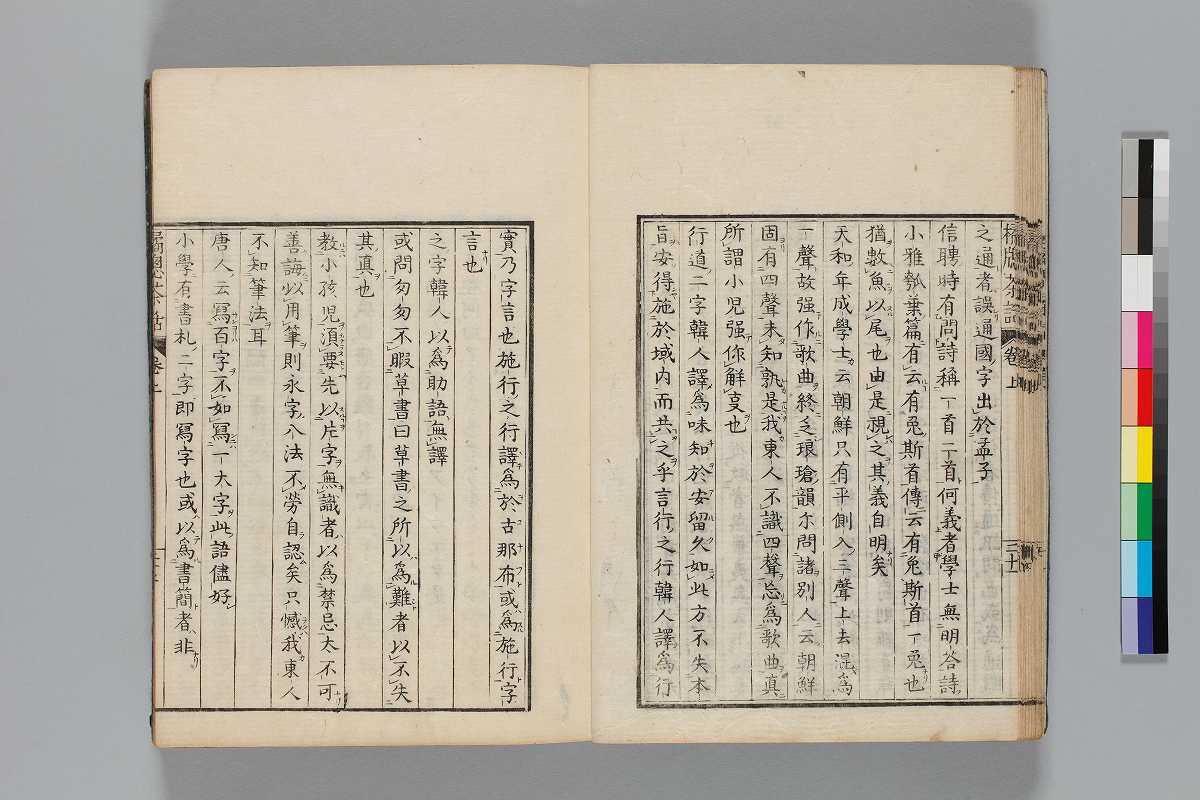 之通者誤通國字出於孟子
信聘時有問詩稱一首二首何義者學士無明答詩
小雅瓠葉篇有云有兎斯首傳云有兎斯首一兎也
猶數魚以尾也由是視之其義自明矣
天和年成學士云朝鮮只有平側入三聲上去混爲
一聲故强作歌曲終乏琅瑲韻尓問諸別人云朝鮮
固有四聲未知孰是我東人不識四聲忘爲歌曲真
所謂小児强作解叓也
行道二字韓人譯爲味知於安留久如此方不失本
旨安得施於域内而共之乎言行之行韓人譯爲行
實乃字言也施行之行譯爲於古那布或爲施行字
言也
之字韓人以爲助語無譯
或問匆匆不暇草書曰草書之所以爲難者以不失
其真也
教小孩児須要先以片字無識者以爲禁忌太不可
善誨以用筆則永字八法不勞自認矣只憾我東人
不知筆法耳
唐人云寫百字不如寫一大字此語儘好
小學有書札二字即寫字也或以爲書簡者非